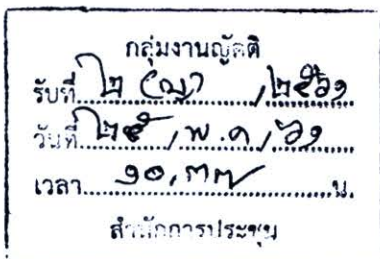 กลุ่มงานญัตติ
รับที่ ๒ (ญ) / ๒๕๖๑
วันที่ ๒๕ / พ.ค / ๖๑
เวลา ๑๐,๓๗ น.
สำนักการประชุม